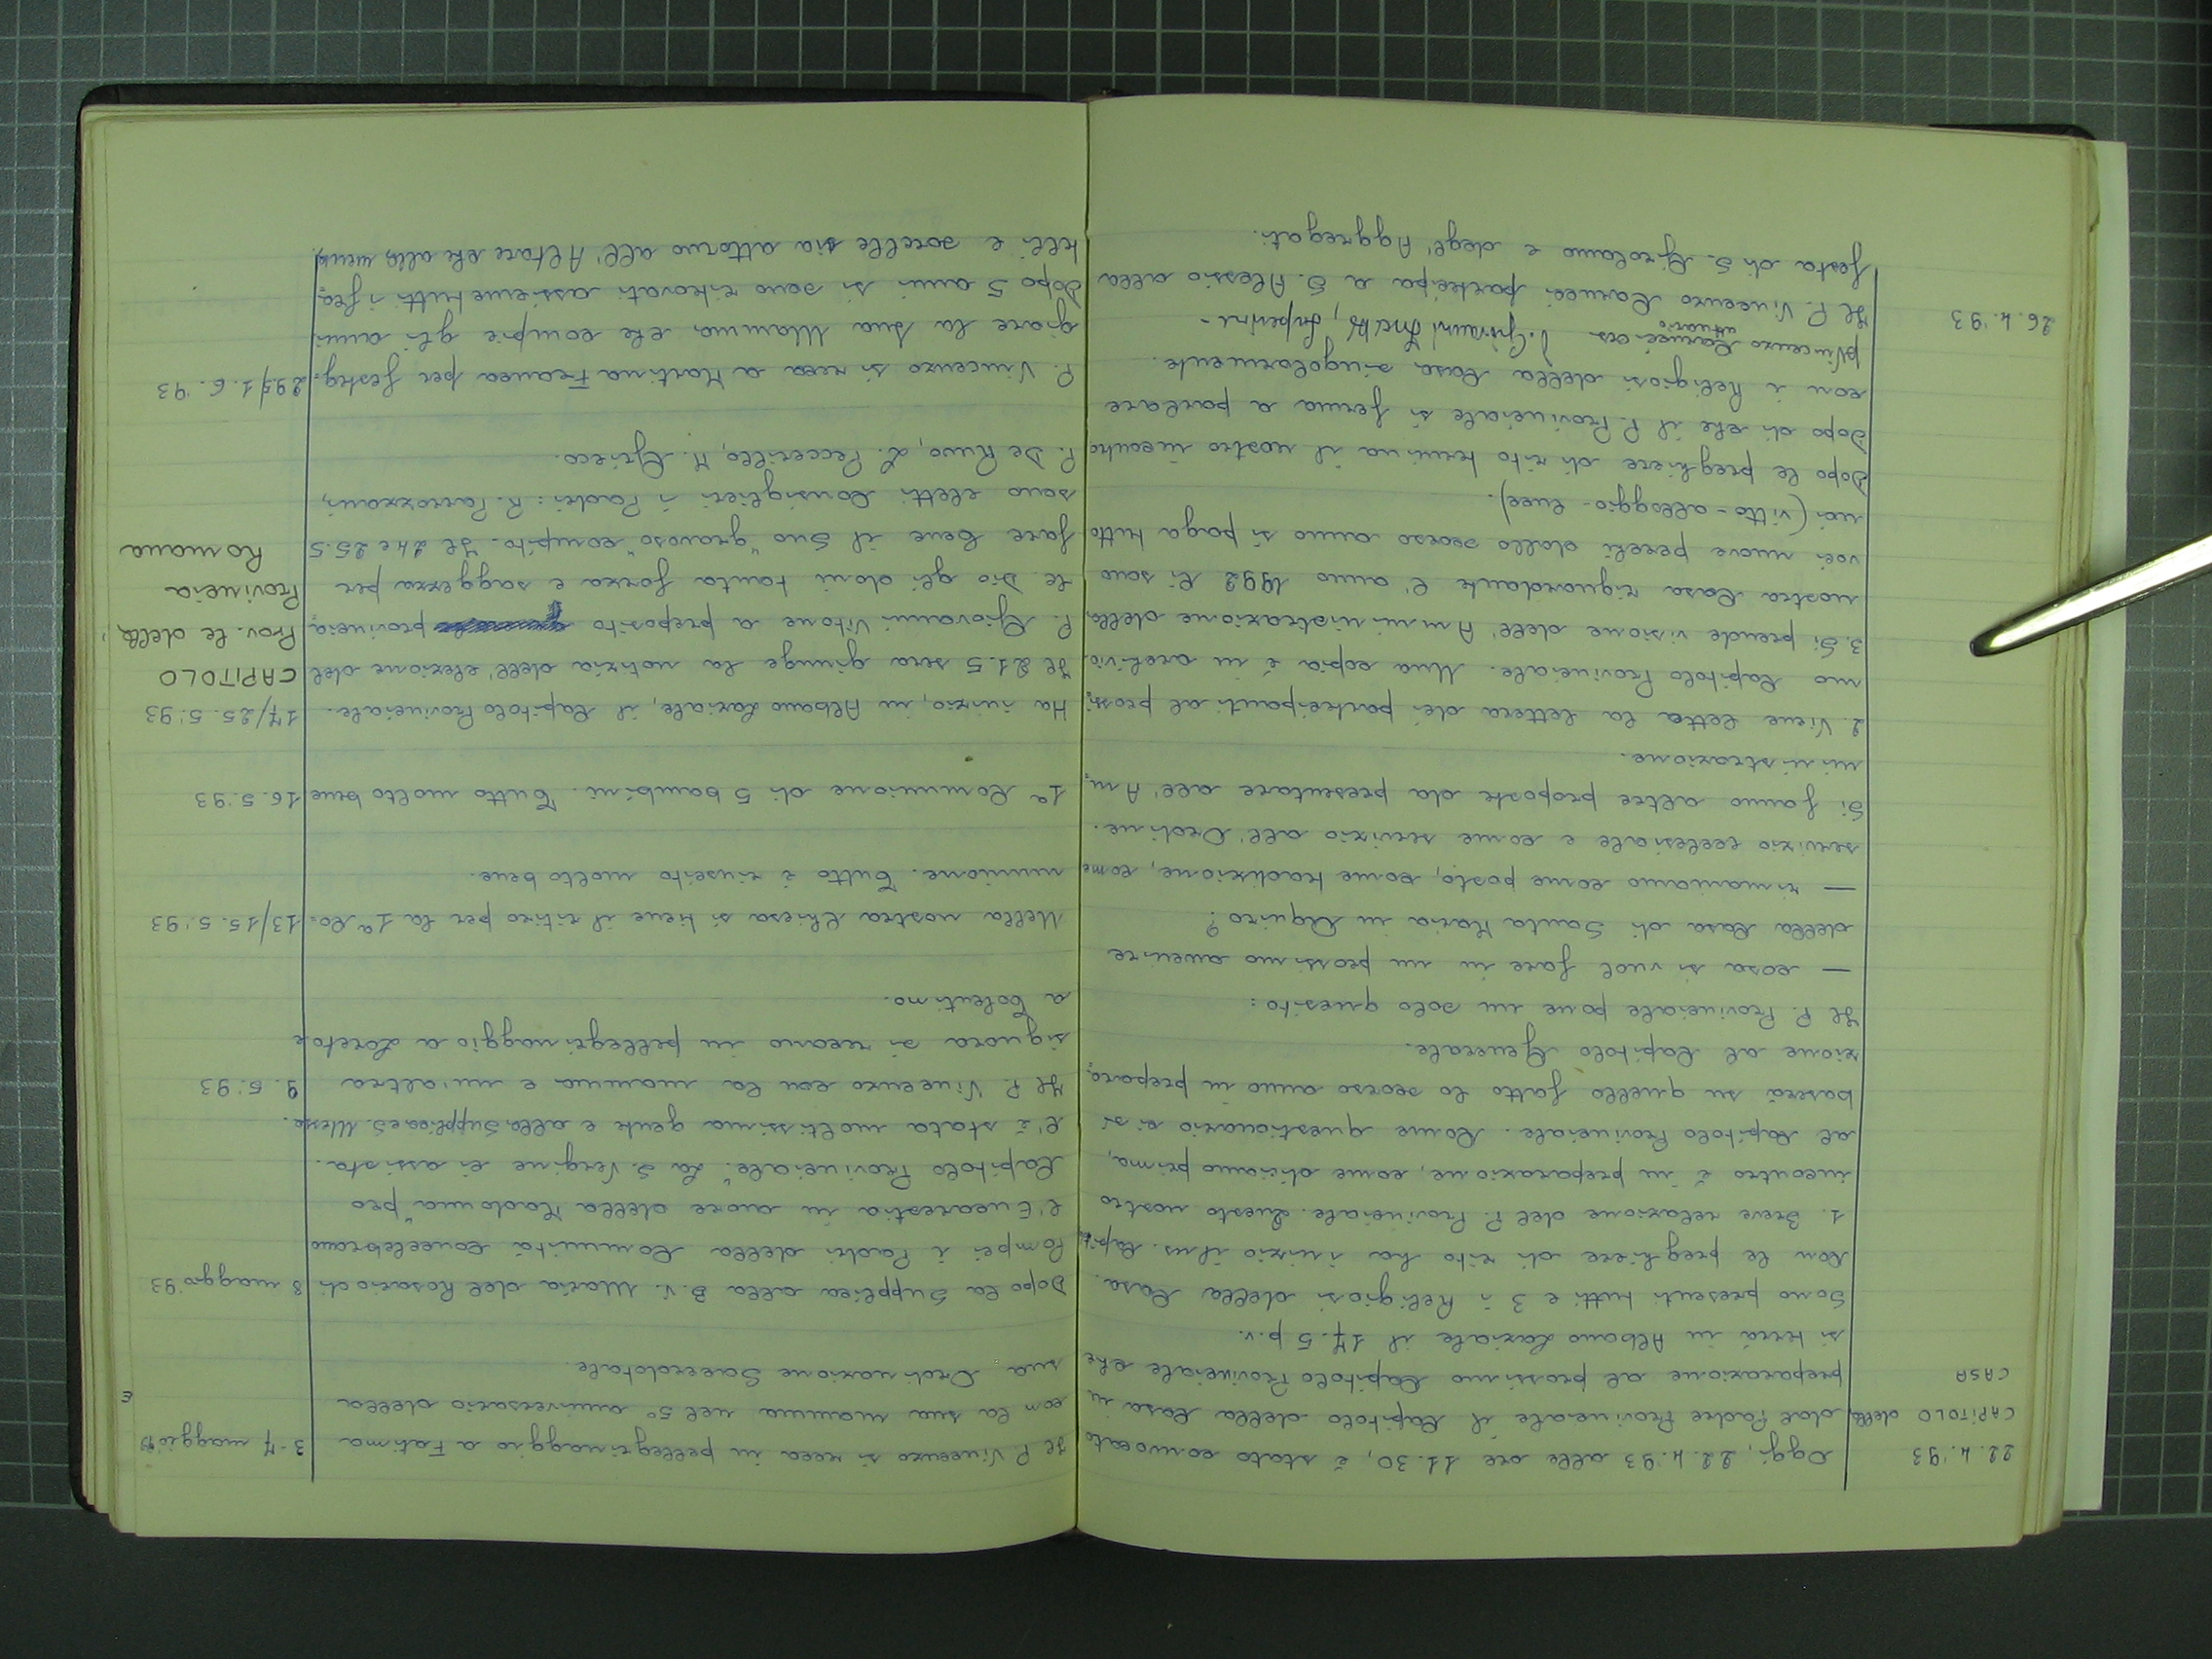 22.4.'93 Oggi, 22.4.'93 alle ore 11.30, è stato convocato
CAPITOLO della dal Padre Provinciale il Capitolo della Casa in
CASA preparazione al prossimo Capitolo Provinciale che
si terrà in Albano Laziale il 17.5 p.v.
Sono presenti tutti e 3 i Religiosi della Casa.
Con le preghiere di rito ha inizio il ns. Capitolo
1. Breve relazione del P. Provinciale. Questo nostro
incontro è in preparazione, come diciamo prima,
al Capitolo Provinciale. Come questionario ci si
baserà su quello fatto lo scorso anno in prepara-
zione al Capitolo Generale.
Il P. Provinciale pone un solo quesito:
— cosa si vuol fare in un prossimo avvenire
della Casa di Santa Maria in Aquiro?
— rimaniamo come posto, come tradizione, come
servizio ecclesiale e come servizio all'Ordine.
Si fanno altre proposte da presentare all'Am-
ministrazione.
2. Viene letta la lettera dei partecipanti al prossi-
mo Capitolo Provinciale. Una copia è in archivio.
3. Si prende visione dell'Amministrazione della
nostra Casa riguardante l'anno 1992 Ci sono
voci nuove perchè dallo scorso anno si paga tutto
noi (vitto-alloggio-luce).
Dopo le preghiere di rito termina il nostro incontro
Dopo di che il P. Provinciale si ferma a parlare
con i Religiosi della Casa singolarmente.
p. Vincenzo crs attuario p. Giovanni Superiore-
26.4.'93 Il P. Vincenzo partecipa a S. Alessio alla
festa di S. Girolamo e degl'Aggregati.
Il P. Vincenzo si reca in pellegrinaggio a Fatima 3-7 maggio 93
con la sua mamma nel 5° anniversario della
sua Ordinazione Sacerdotale.
Dopo la Supplica alla B.V. Maria del Rosario di 8 maggio '93
Pompei i Padri della Comunità Concelebrano
l'Eucarestia in onore della Madonna "pro
Capitolo Provinciale". La S. Vergine ci assista.
C'è stata moltissima gente e alla Supplica e S. Messa.
Il P. Vincenzo con la mamma e un'altra 9.5.'93
signora si recano in pellegrinaggio a Loreto e
a Tolentino.
Nella nostra Chiesa si tiene il ritiro per la 1ª Co- 13/15.5.'93
munione. Tutto è riuscito molto bene.
1ª Comunione di 5 bambini. Tutto molto bene 16.5.'93
Ha inizio, in Albano Laziale, il Capitolo Provinciale. 17/25.5.'93
Il 21.5 sera giunge la notizia dell'elezione del CAPITOLO
P. Giovanni Vitone a preposito provincia- Prov.le della
le. Dio gli doni tanta forza e saggezza per Provincia
fare bene il suo "gravoso" compito. Il 24 e 25.5 Romana
sono eletti Consiglieri i Padri: R.
P. De Ruvo, L. Peccerillo, M. Grieco.
P. Vincenzo si reca a Martina Franca per festeg- 29.5/1.6.'93
giare la sua Mamma che compie gli anni
Dopo 5 anni si sono ritrovati assieme tutti i fra-
telli e sorelle sia attorno all'Altare che alla mensa.